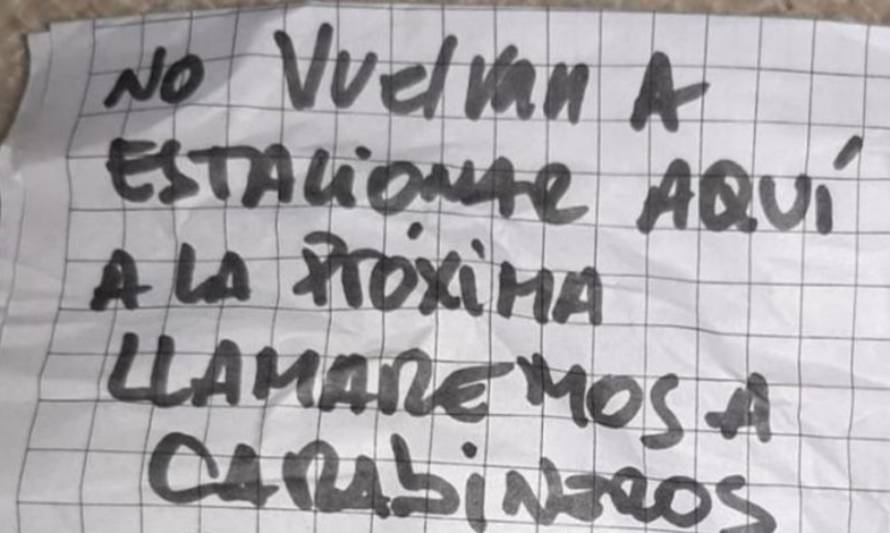 NO VuelVan A
ESTACIONAR AQUÍ
A LA PróXiMA
LLAMAREMOS A
CARAbiNEROS